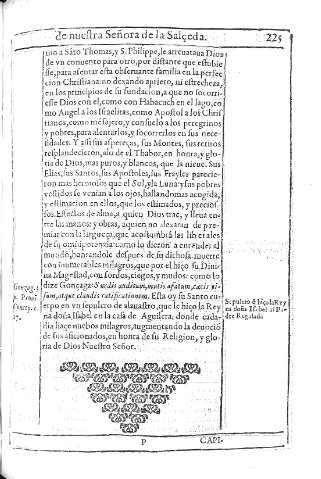 de nuestra Señora de la Salçeda. 225
mo a Sáto Thomas, y S. Philippe, le arrebataua Dios
de vn conuento para otro, por distante que estubie
sse, para asentar esta obseruante familia en la perfec
ciòn Christiana no dexando aprieto, ni estrecheza,
en los principios de su fundacion, a que no socorri-
esse Dios con el, como con Habacuch en el lago, co
mo Angel a los Israelitas, como Apostol a los Chris
tianos, como mesõ, y consuelo a los peregrinos
y pobres, para alentarlos, y socorrerlos en sus nece
sidades. Y assi sus asperças, sus Montes, sus retiros
resplandecieron, als de el Thabor, en honra, y glo
ria de Dios, mas puros, y blancos, que la nieue. Sus
Elias, sus Santos, sus Apostoles, sus Frayles parecie
ron mas hermosos que el Sol, y la Luna y sus pobres
vestidos se venian a los ojos, hallandomas acogida,
y estimacion en ellos, que los estimados, y precio
sos. Efectos de alma, a quien Dios trae, y lleua en-
tre las manos y obras, a quien no dexaran de pre-
miar con la largueça, que acostumbra las liberales
de su omnipotenzia: como lo dieron a entender al
mundo, honrandole despues de su dichosa muerte
con innumerables milagros, que por el hiço su Diui
na Magestad, con sordos, ciegos, y mudos: como lo
dize Gonçaga: Surdis auditum, mutis afatum, cæcis vi-
sum, atque claudis ratificationem. Esta oy su Santo cu-
erpo en vn sepulcro de alauastro, que le hiço la Rey
na doña Isabel en la casa de Aguilera, donde cada
dia haçe muchos milagros, augmentando la deuociõ
de sus aficionados, en honra de su Religion, y glo
ria de Dios Nuestro Señor.
Gonzag. 3.
p. Proui.
17.
Sepulcro q̃ hiço la Rey
na doña Isabel al Pa-
dre Regalada
P CAPI-